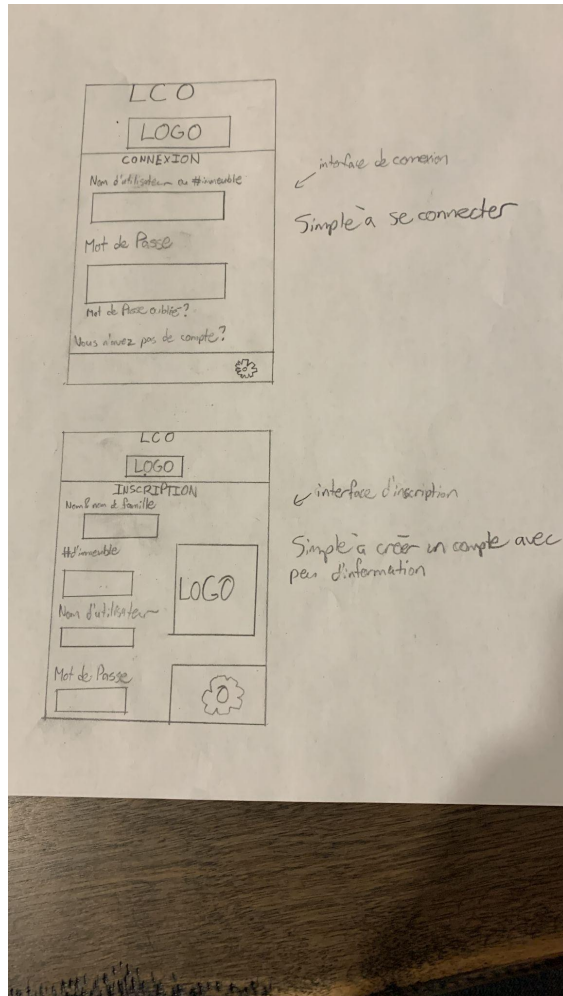 LCO
LOGO
CONNEXION
Nom d'utilisateur ou #immeuble
Mot de Passe
Mot de Passe oubliés?
Vous n'avez pas de compte?
interface de connexion
Simple à se connecter
LCO
LOGO
INSCRIPTION
Nom & nom de famille
#d'immeuble
LOGO
Nom d'utilisateur
Mot de Passe
interface d'inscription
Simple à créer un compte avec
peu d'information